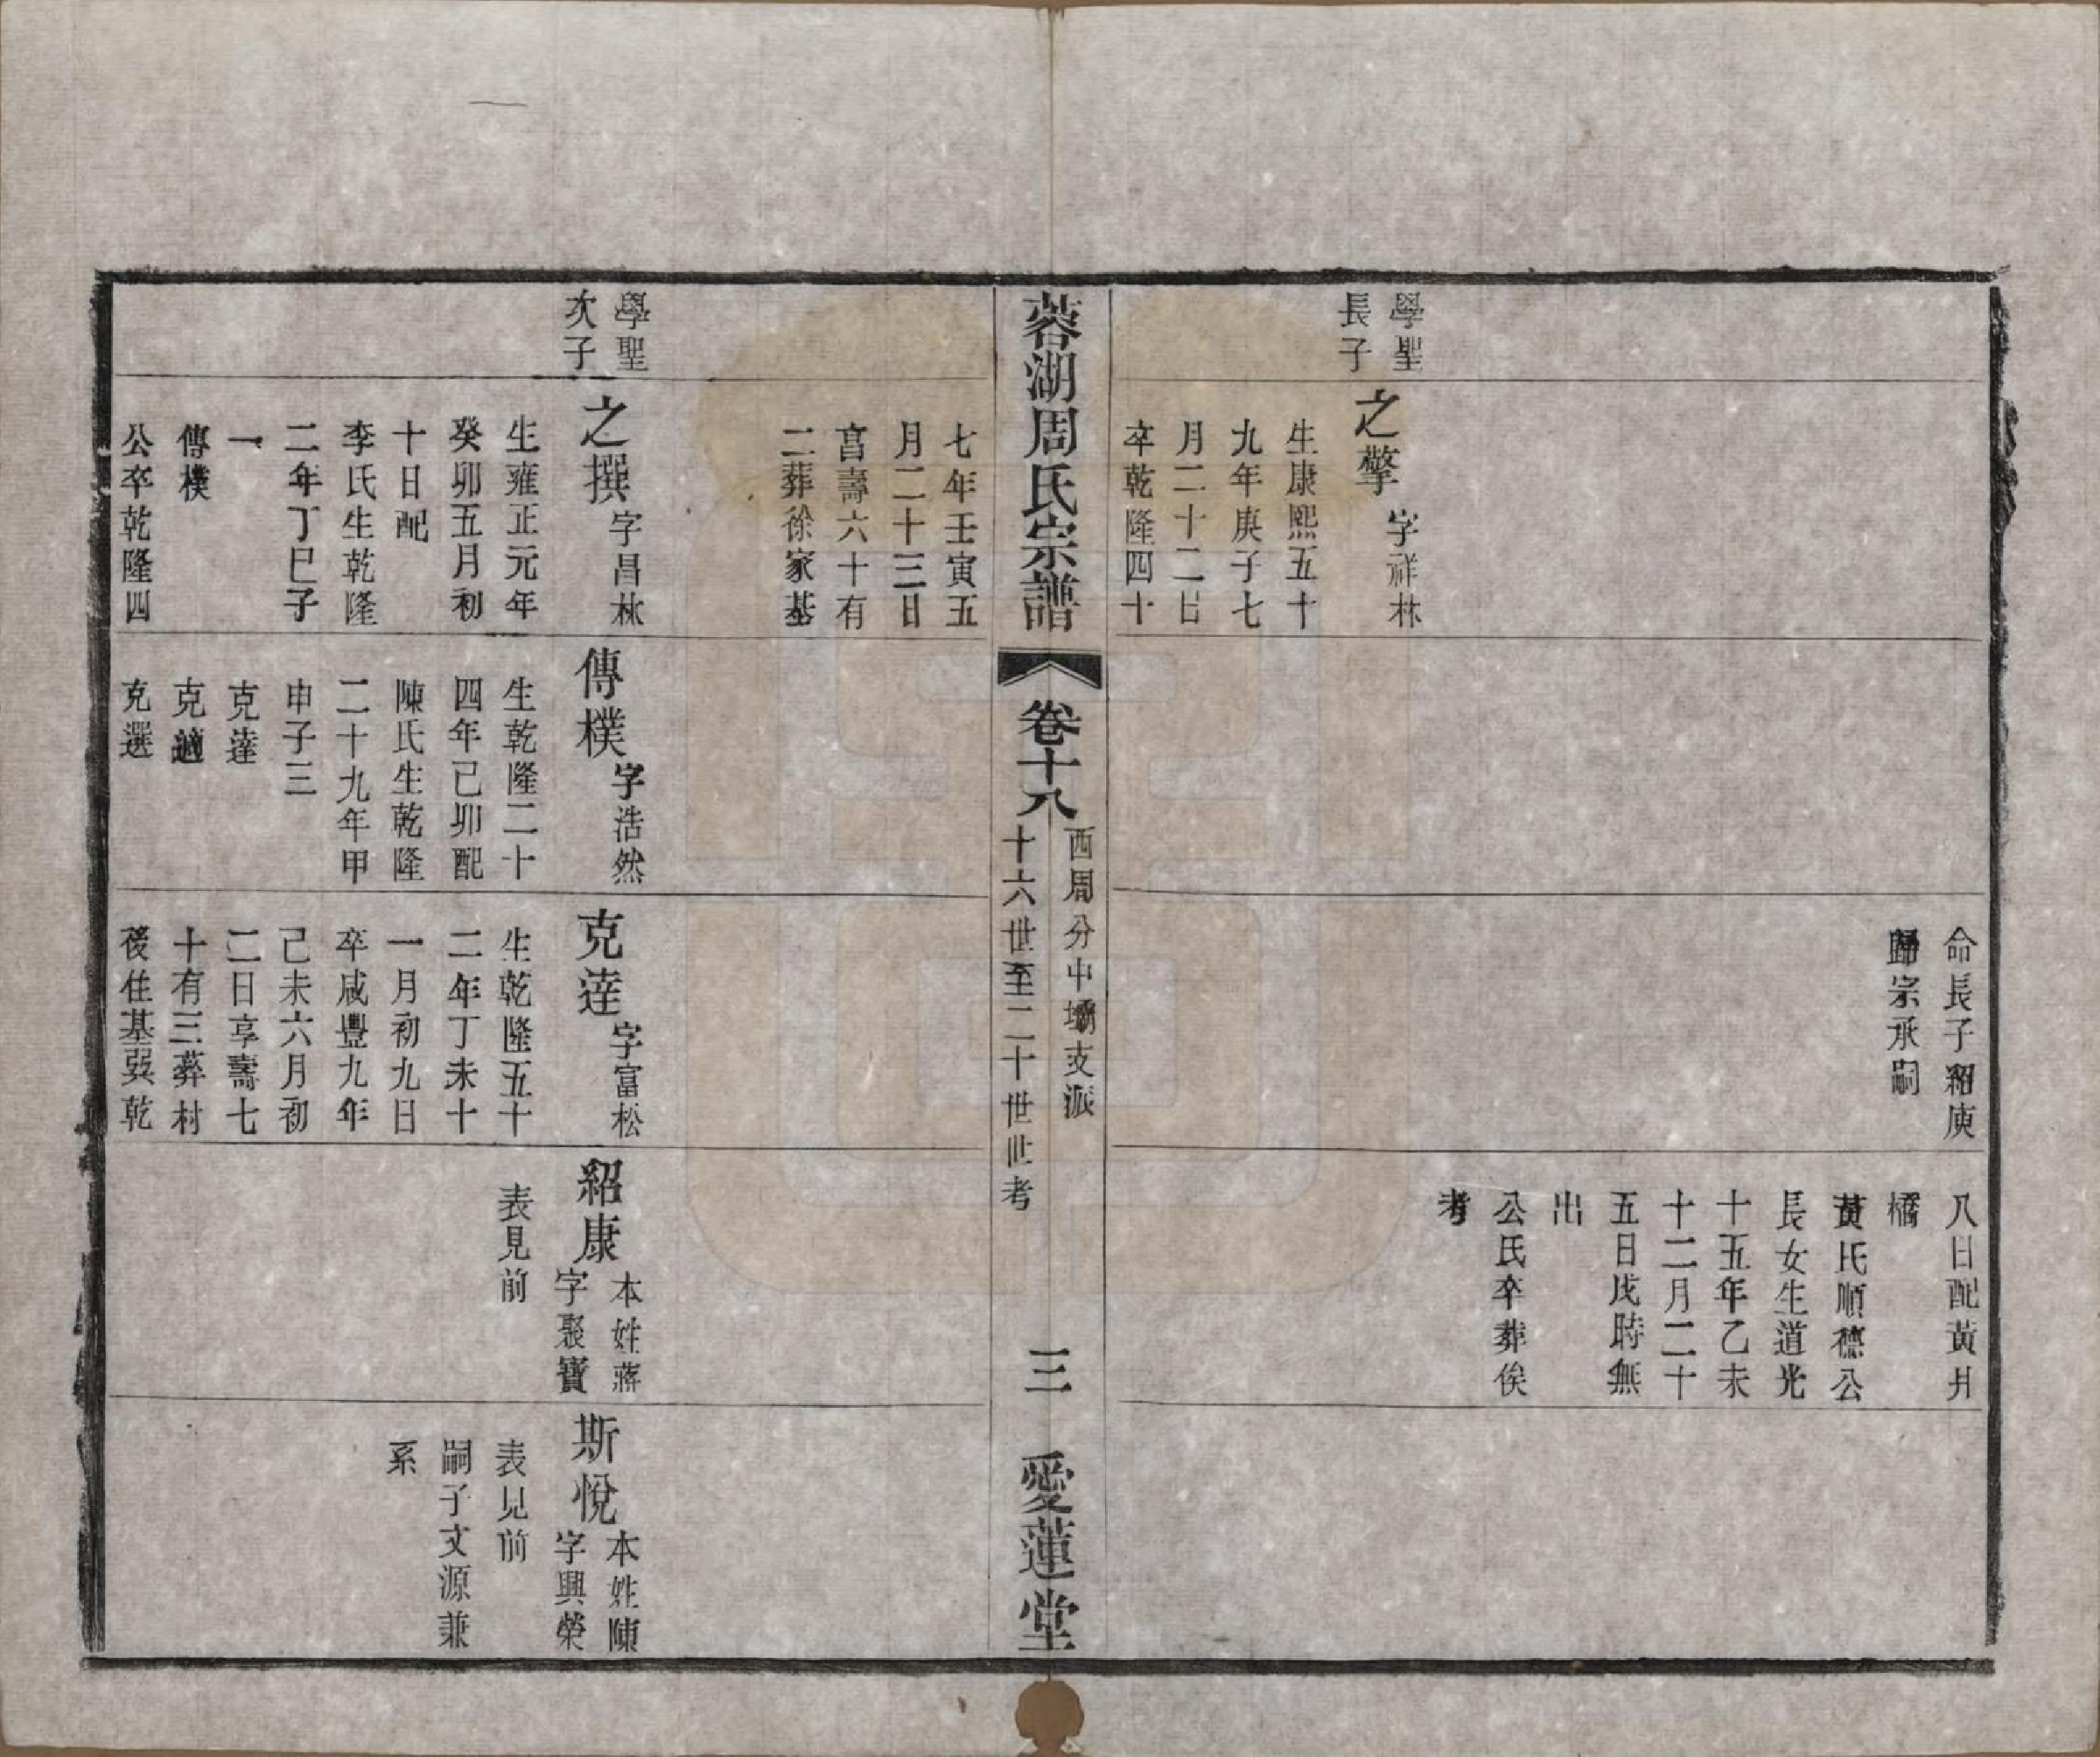 命長子紹庚
歸宗承嗣
八日配黃廾
橋
黃氏順德公
長女生道光
十五年乙未
十二月二十
五日戌時無
出
公氏卒葬俟
考
學聖
長子
之擎
字祥林
生康熙五十
九年庚子七
月二十二日
卒乾隆四十
蓉湖周氏宗譜
卷十八
西周分中壩支派
十六世至二十世世考
三
愛蓮堂
七年壬寅五
月二十三日
亯壽六十有
二葬徐家基
學聖
次子
之撰
字昌林
生雍正元年
癸卯五月初
十日配
李氏生乾隆
二年丁巳子
一
傳樸
公卒乾隆四
傳樸
字浩然
生乾隆二十
四年己卯配
陳氏生乾隆
二十九年甲
申子三
克達
克適
克選
克達
字富松
生乾隆五十
二年丁未十
一月初九日
卒咸豐九年
己未六月初
二日享壽七
十有三葬村
後住基巽乾
紹康
本姓蔣
字聚寶
表見前
斯悅
本姓陳
字興榮
表見前
嗣子文源兼
系